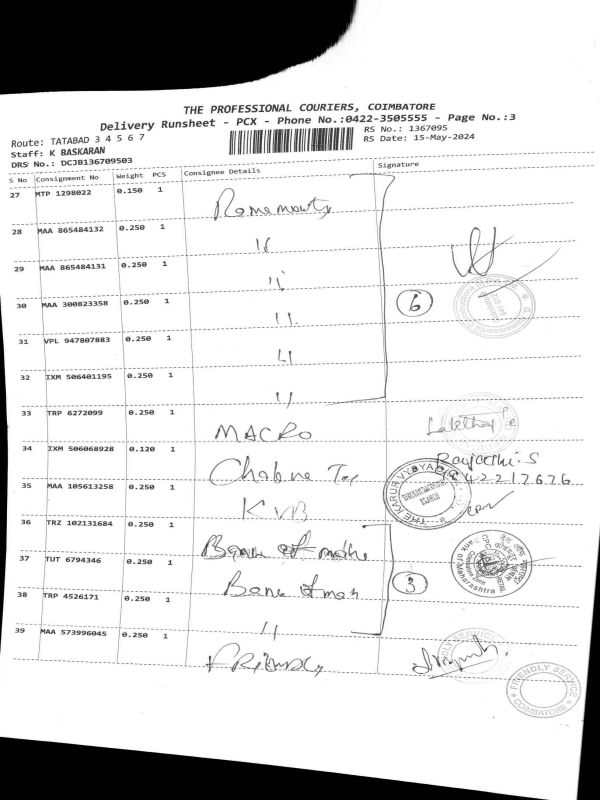 THE PROFESSIONAL COURIERS, COIMBATORE
Delivery Runsheet - PCX - Phone No.:0422-3505555 - Page No.:3
Route: TATABAD 3 4 5 6 7
RS No.: 1367095
Staff: K BASKARAN
RS Date: 15-May-2024
DRS No.: DCJB136709503
S No Consignment No Weight PCS Consignee Details Signature
27 MTP 1298022 0.150 1
28 MAA 865484132 0.250 1 ''
29 MAA 865484131 0.250 1 ''
30 MAA 300823358 0.250 1 ''
6
31 VPL 947807883 0.250 1 ''
32 IXM 506401195 0.250 1 ''
33 TRP 6272099 0.250 1 MACRO
34 IXM 506068928 0.120 1
35 MAA 105613258 0.250 1 KVB
THE KARUR VYSYA BANK
BRANCH
36 TRZ 102131684 0.250 1 Bank of
37 TUT 6794346 0.250 1
3
Bank of Maharashtra
38 TRP 4526171 0.250 1 ''
39 MAA 573996045 0.250 1
FRIENDLY SERVICE
COIMBATORE